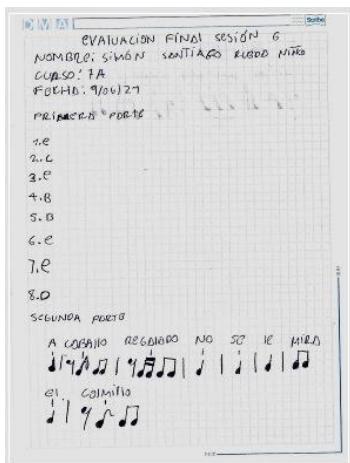 Scribe
EVALUACIÓN FINAL SESIÓN 6
NOMBRE: SIMÓN SANTIAGO RUBIO NIÑO
CURSO: 7A
FECHA: 9/06/21
PRIMERA PARTE
1.e
2.c
3.e
4.B
5.B
6.e
7.e
8.D
SEGUNDA PARTE
A CABAllO REGALADO NO SE lE MIRA
el COlMIllO